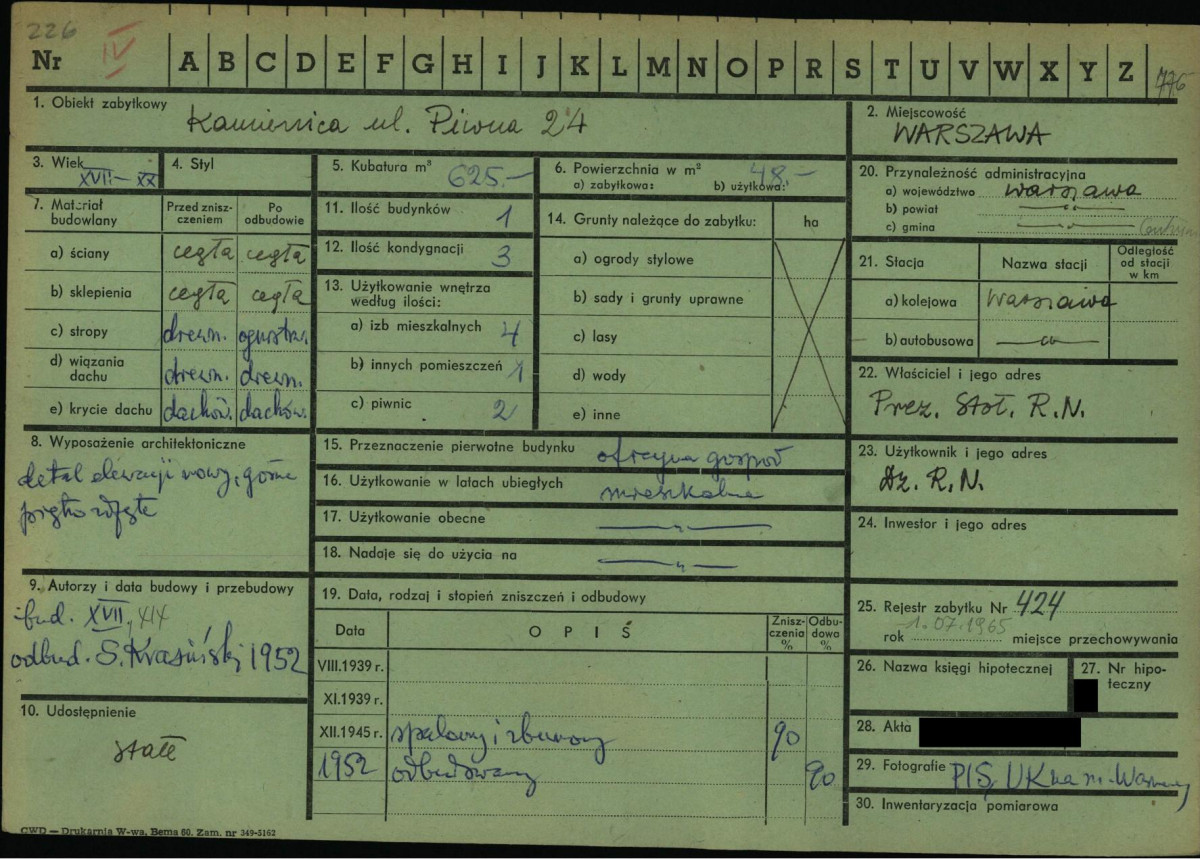 226
Nr IV A B C D E F G H I J K L M N O P R S T U V W X Y Z 776
1. Obiekt zabytkowy
Kamienica ul. Piwna 24
2. Miejscowość
WARSZAWA
3. Wiek
XVII – XX
4. Styl
5. Kubatura m³ 625.–
6. Powierzchnia w m² 48.–
a) zabytkowa: b) użytkowa:
7. Materiał budowlany
Przed zniszczeniem
Po odbudowie
a) ściany cegła cegła
b) sklepienia cegła cegła
c) stropy drewn. ogniotrw.
d) wiązania dachu drewn. drewn.
e) krycie dachu dachów. dachów.
8. Wyposażenie architektoniczne
detal elewacji nowy, górne
piętro
9. Autorzy i data budowy i przebudowy
bud. XVII, XIX
odbud. S. Krasiński, 1952
10. Udostępnienie
stałe
11. Ilość budynków 1
12. Ilość kondygnacji 3
13. Użytkowanie wnętrza według ilości:
a) izb mieszkalnych 4
b) innych pomieszczeń 1
c) piwnic 2
14. Grunty należące do zabytku: ha
a) ogrody stylowe
b) sady i grunty uprawne
c) lasy
d) wody
e) inne
15. Przeznaczenie pierwotne budynku oficyna gospod
16. Użytkowanie w latach ubiegłych mieszkalne
17. Użytkowanie obecne —„—
18. Nadaje się do użycia na —„—
19. Data, rodzaj i stopień zniszczeń i odbudowy
Data O P I Ś Zniszczenia % Odbudowa %
VIII.1939 r.
XI.1939 r.
XII.1945 r. spalony i zburzony 90
1952 odbudowany 90
20. Przynależność administracyjna
a) województwo warszawa
b) powiat —„—
c) gmina —„—
21. Stacja
Nazwa stacji
Odległość od stacji w km
a) kolejowa Warszawa
b) autobusowa —„—
22. Właściciel i jego adres
Prez. Stoł. R.N.
23. Użytkownik i jego adres
Dz. R.N.
24. Inwestor i jego adres
25. Rejestr zabytku Nr 424
rok 1.07.1965 miejsce przechowywania
26. Nazwa księgi hipotecznej
27. Nr hipoteczny
28. Akta
29. Fotografie PIS, UK na m. Warszawy
30. Inwentaryzacja pomiarowa
CWD — Drukarnia W-wa, Bema 60. Zam. nr 349-5162